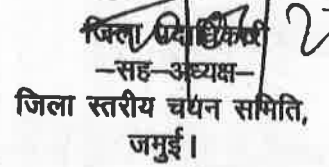 जिला पदाधिकारी
–सह–अध्यक्ष–
जिला स्तरीय चयन समिति,
जमुई।